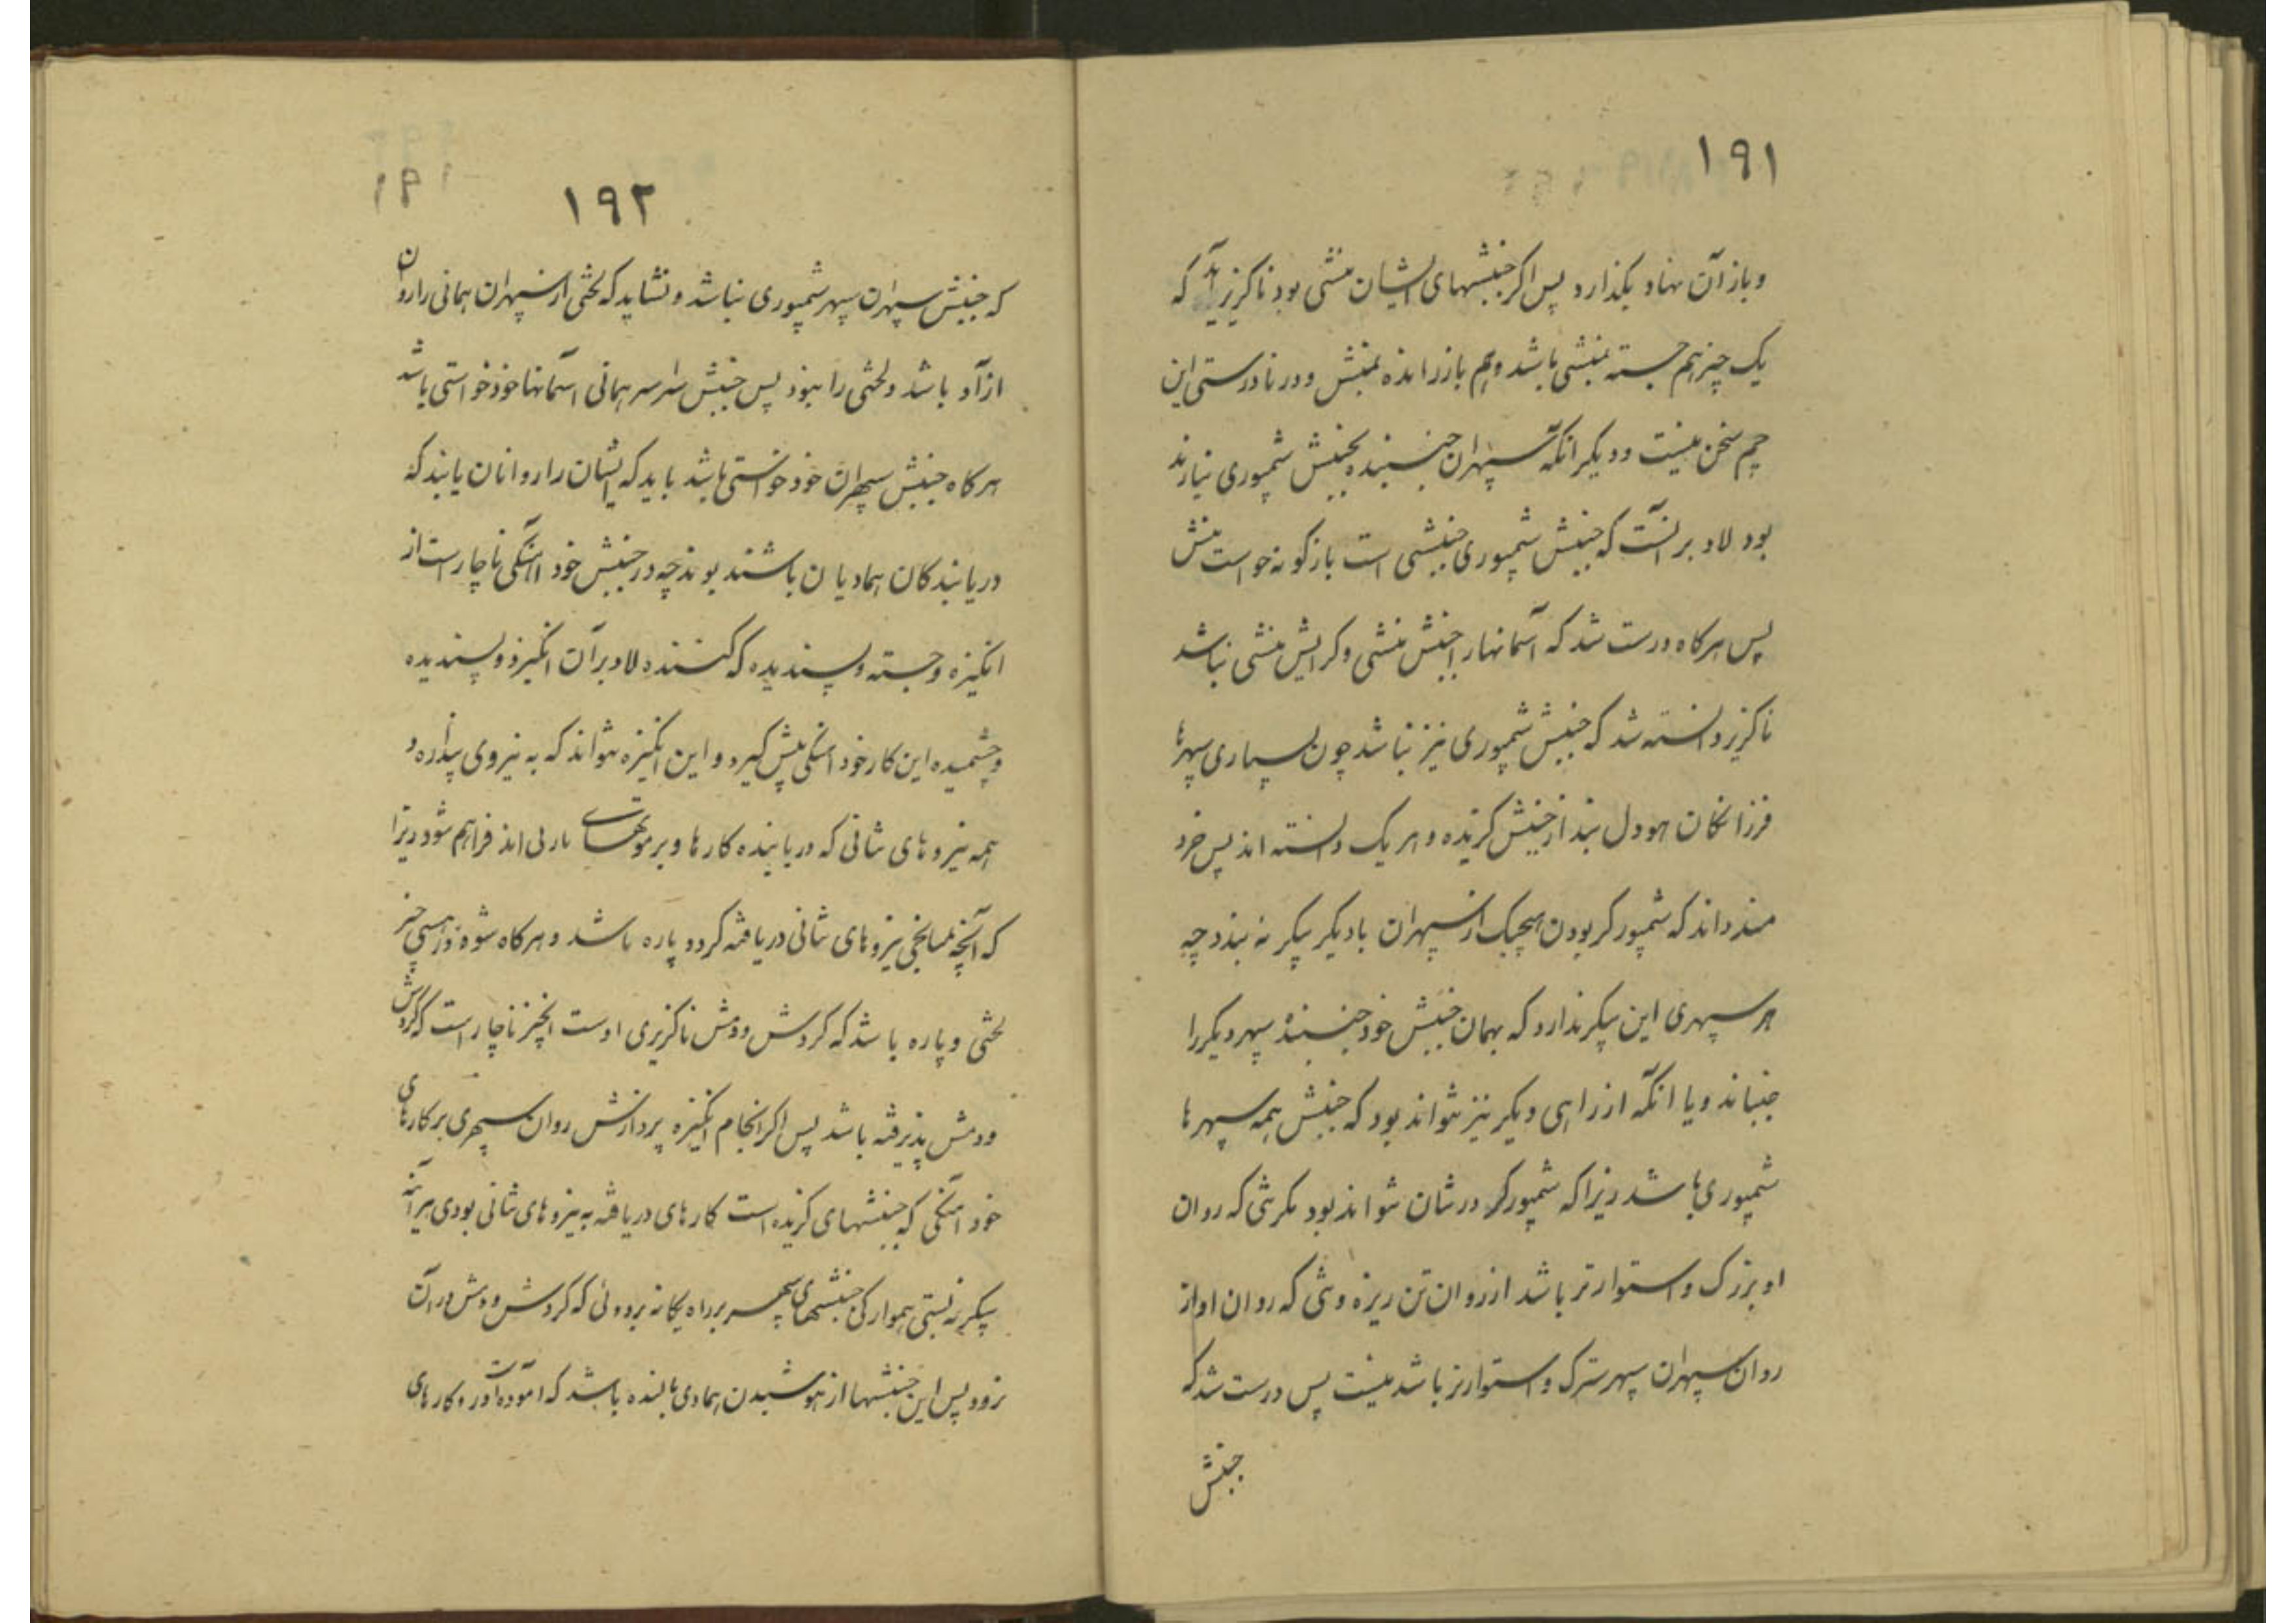 ۱۹۱
و باز آن نهاد بگذارد پس اگر جنبشهای ایشان منشی بود ناگزیر آید که
یک چیز هم جسته منشی باشد و هم باز رانده بمنش و در نادرستی این
چم سخن نیست و دیگر آنکه سپهران جنبنده بجنبش شمپوری نیارند
بود لاد بر آنست که جنبش شمپوری جنبشی است بازگونه خواست منش
پس هرگاه درست شد که آسمانها را جنبش منشی و گرایش منشی نباشد
ناگزیر دانسته شد که جنبش شمپوری نیز نباشد چون بسیاری سپهرها
فرزانگان هودل بند از جنبش گزیده و هر یک دانسته اند پس خرد
مند داند که شمپورگر بودن هیچیک از سپهران با دیگر پیکر نه بندد چه
هر سپهری این پیکر ندارد که بهمان جنبش خود جنبنده سپهر دیگر را
جنباند و یا آنکه از راهی دیگر نیز نتواند بود که جنبش همه سپهرها
شمپوری باشد زیرا که شمپورگر درشان نتواند بود مگر تنی که روان
او بزرگ و استوارتر باشد از روان تن ریزه و تنی که روان او از
روان سپهران سپهر سترگ و استوارتر باشد نیست پس درست شد که
جنبش
۱۹۲
که جنبش سپهران سپهر شمپوری نباشد و نشاید که لختی از سپهران همانی را روان
ازاد باشد و لختی را نبود پس جنبش سراسر همانی آسمانها خود خواستی باشد
هرگاه جنبش سپهران خود خواستی باشد باید که ایشان را روانان یابند که
دریابندگان همادیان باشند بوند چه در جنبش خود آهنگی ناچار است از
انگیزه و جسته و پسندیده که کننده لاد بر آن انگیزه و پسندیده
و چشمیده این کار خود آهنگی پیش گیرد و این انگیزه نتواند که به نیروی پنداره و
همه نیروهای تنانی که دریابنده کارها و بر اند فراهم شود زیرا
که آنچه نیروهای تنانی دریافته گردد پاره باشد و هرگاه شوه در هستی چیز
لختی و پاره باشد که گردش و دمش ناگزیری اوست آنچیز ناچار است که گردش
و دمش پذیرفته باشد پس اگر انجام انگیزه پردازش روان سپهری بر کارهای
خود آهنگی که جنبشهای گزیده است کارهای دریافته به نیروهای تنانی بودی هرآینه
پیکر نه بستی هموارگی جنبشهای سپهر بر راه یگانه بروونی که گردش و دمش در آن
نرود پس این جنبشها از هوشیدن همادی باشنده باشد که آموده کارهای